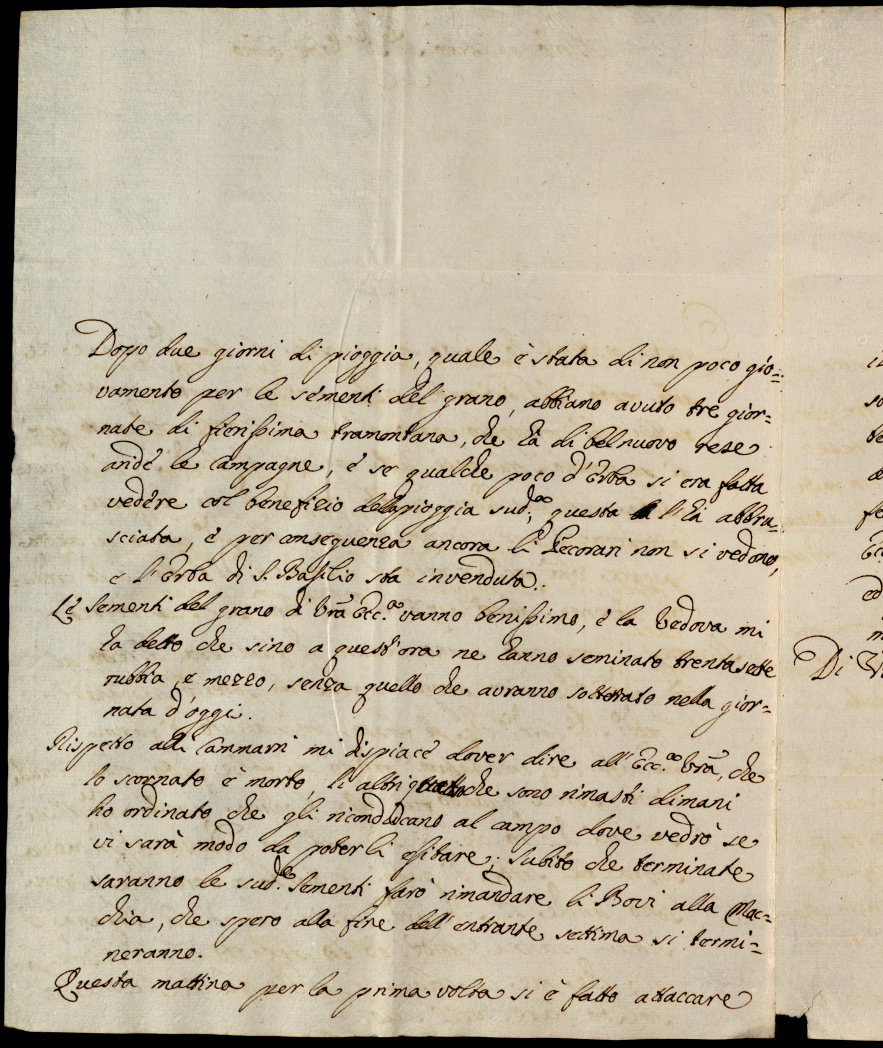 Dopo due giorni di pioggia, quale è stata di non poco gio=
vamento per le sementi del grano, abbiano avuto tre gior=
nate di fierissima tramontana, che hà di bel nuovo rese
aride le Campagne, è se qualche poco d'Erba si era fatta
vedere col beneficio della pioggia sud.ᵃ, questa l'hà abbru=
sciata, è per conseguenza ancora li Pecorari non si vedono,
e l'Erba di S. Basilio sta invenduta.
Le Sementi del grano di Vrã Ecc.ᵃ vanno benissimo, è la Vedova mi
hà detto che sino a quest'ora ne hanno seminato trentasette
rubbia, e mezzo, senza quello che avranno sotterrato nella gior=
nata d'oggi.
Rispetto alli Cammarri mi dispiace dover dire all'Ecc.ᵃ Vrã, che
lo scornato è morto, li altri che sono rimasti dimani
hò ordinato che gli riconducano al campo dove vedrò se
vi sarà modo da poterli esitare; Subito che terminate
saranno le sud.ᵉ Sementi farò rimandare li Bovi alla Mac=
chia, che spero alla fine dell'entrante settima si termi=
neranno.
Questa mattina per la prima volta si è fatto attaccare
Di